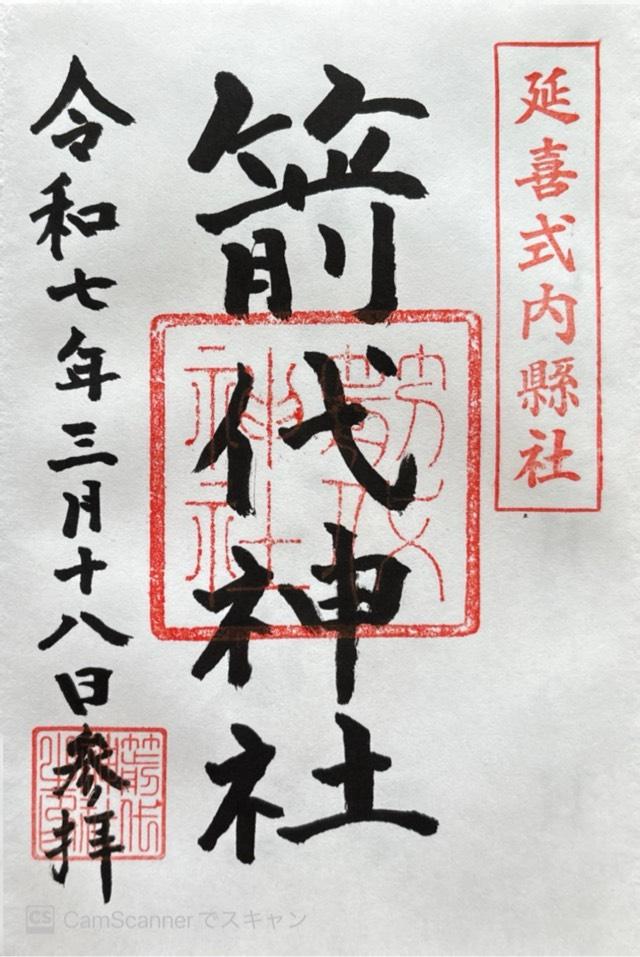 延喜式内縣社
箭代神社
令和七年三月十八日参拝
箭代
神社
CS CamScannerでスキャン